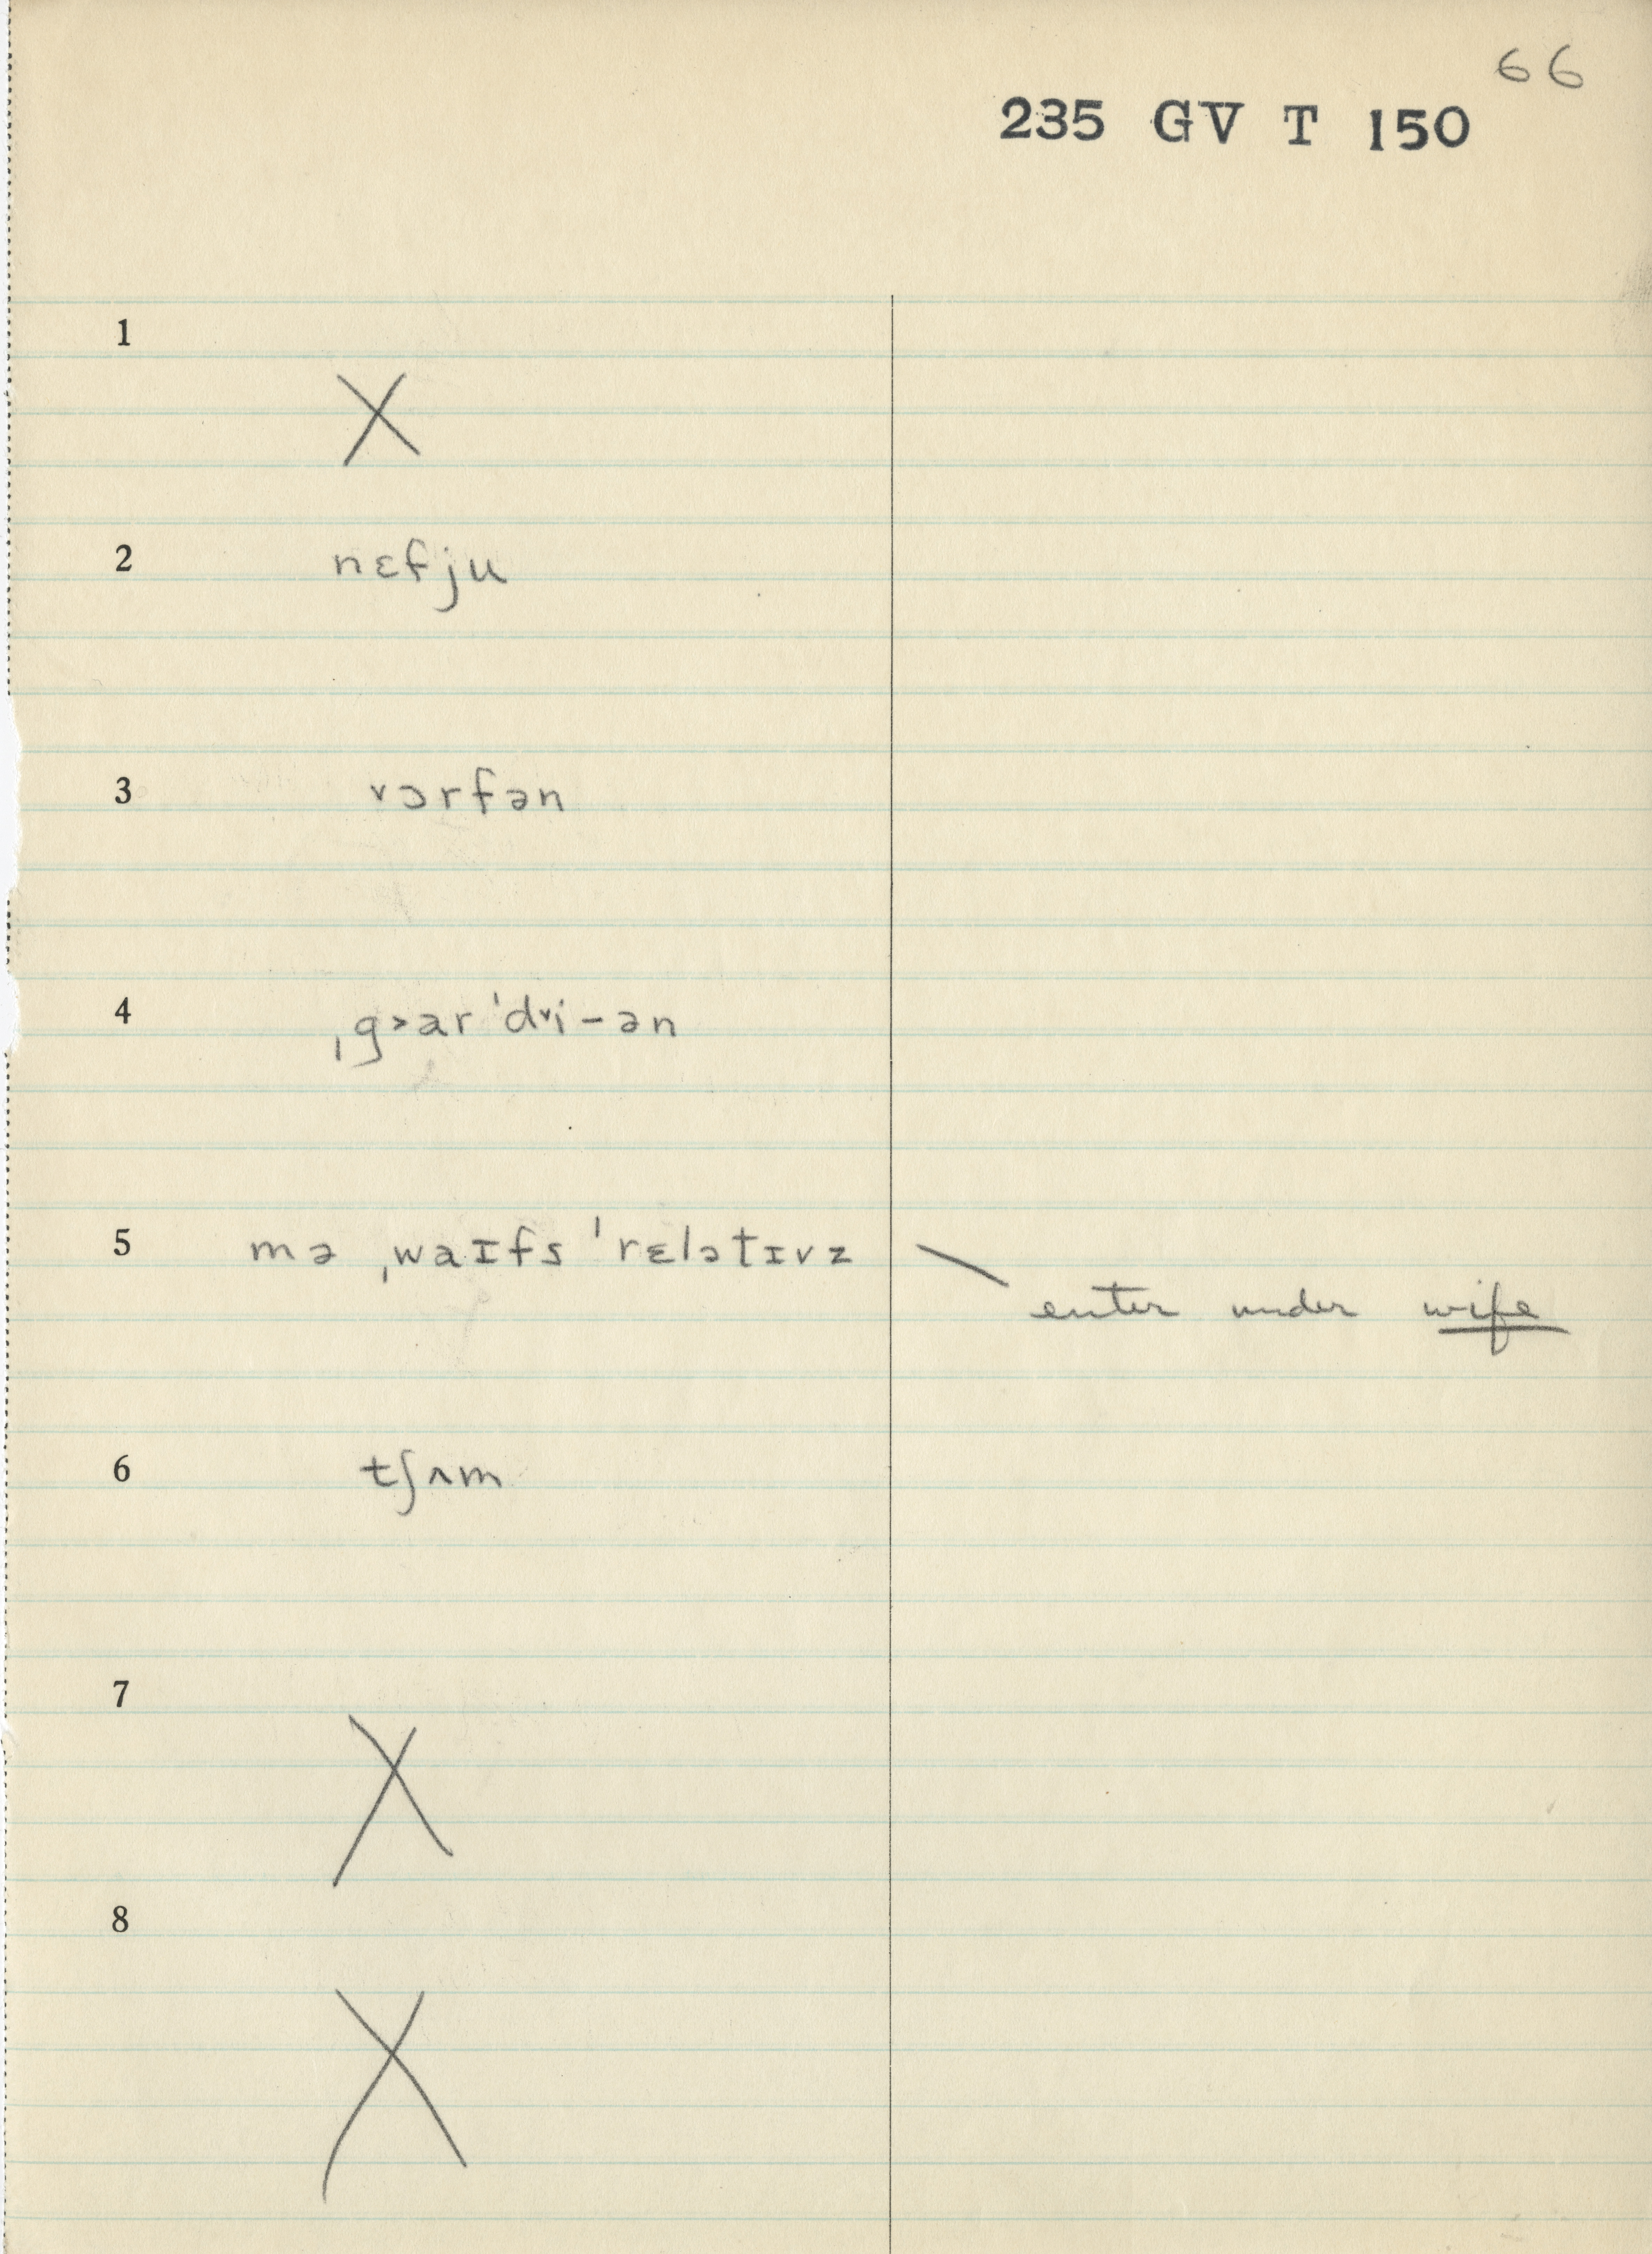 66
235 GV T 150
1
X
2 nɛfju
3 ˅ɔrfən
4 ˌg˃ar ˈd˅i–ən
5 mə ˌwaɪfs ˈrɛlətɪvz \
enter under wife
6 tʃʌm
7
X
8
X